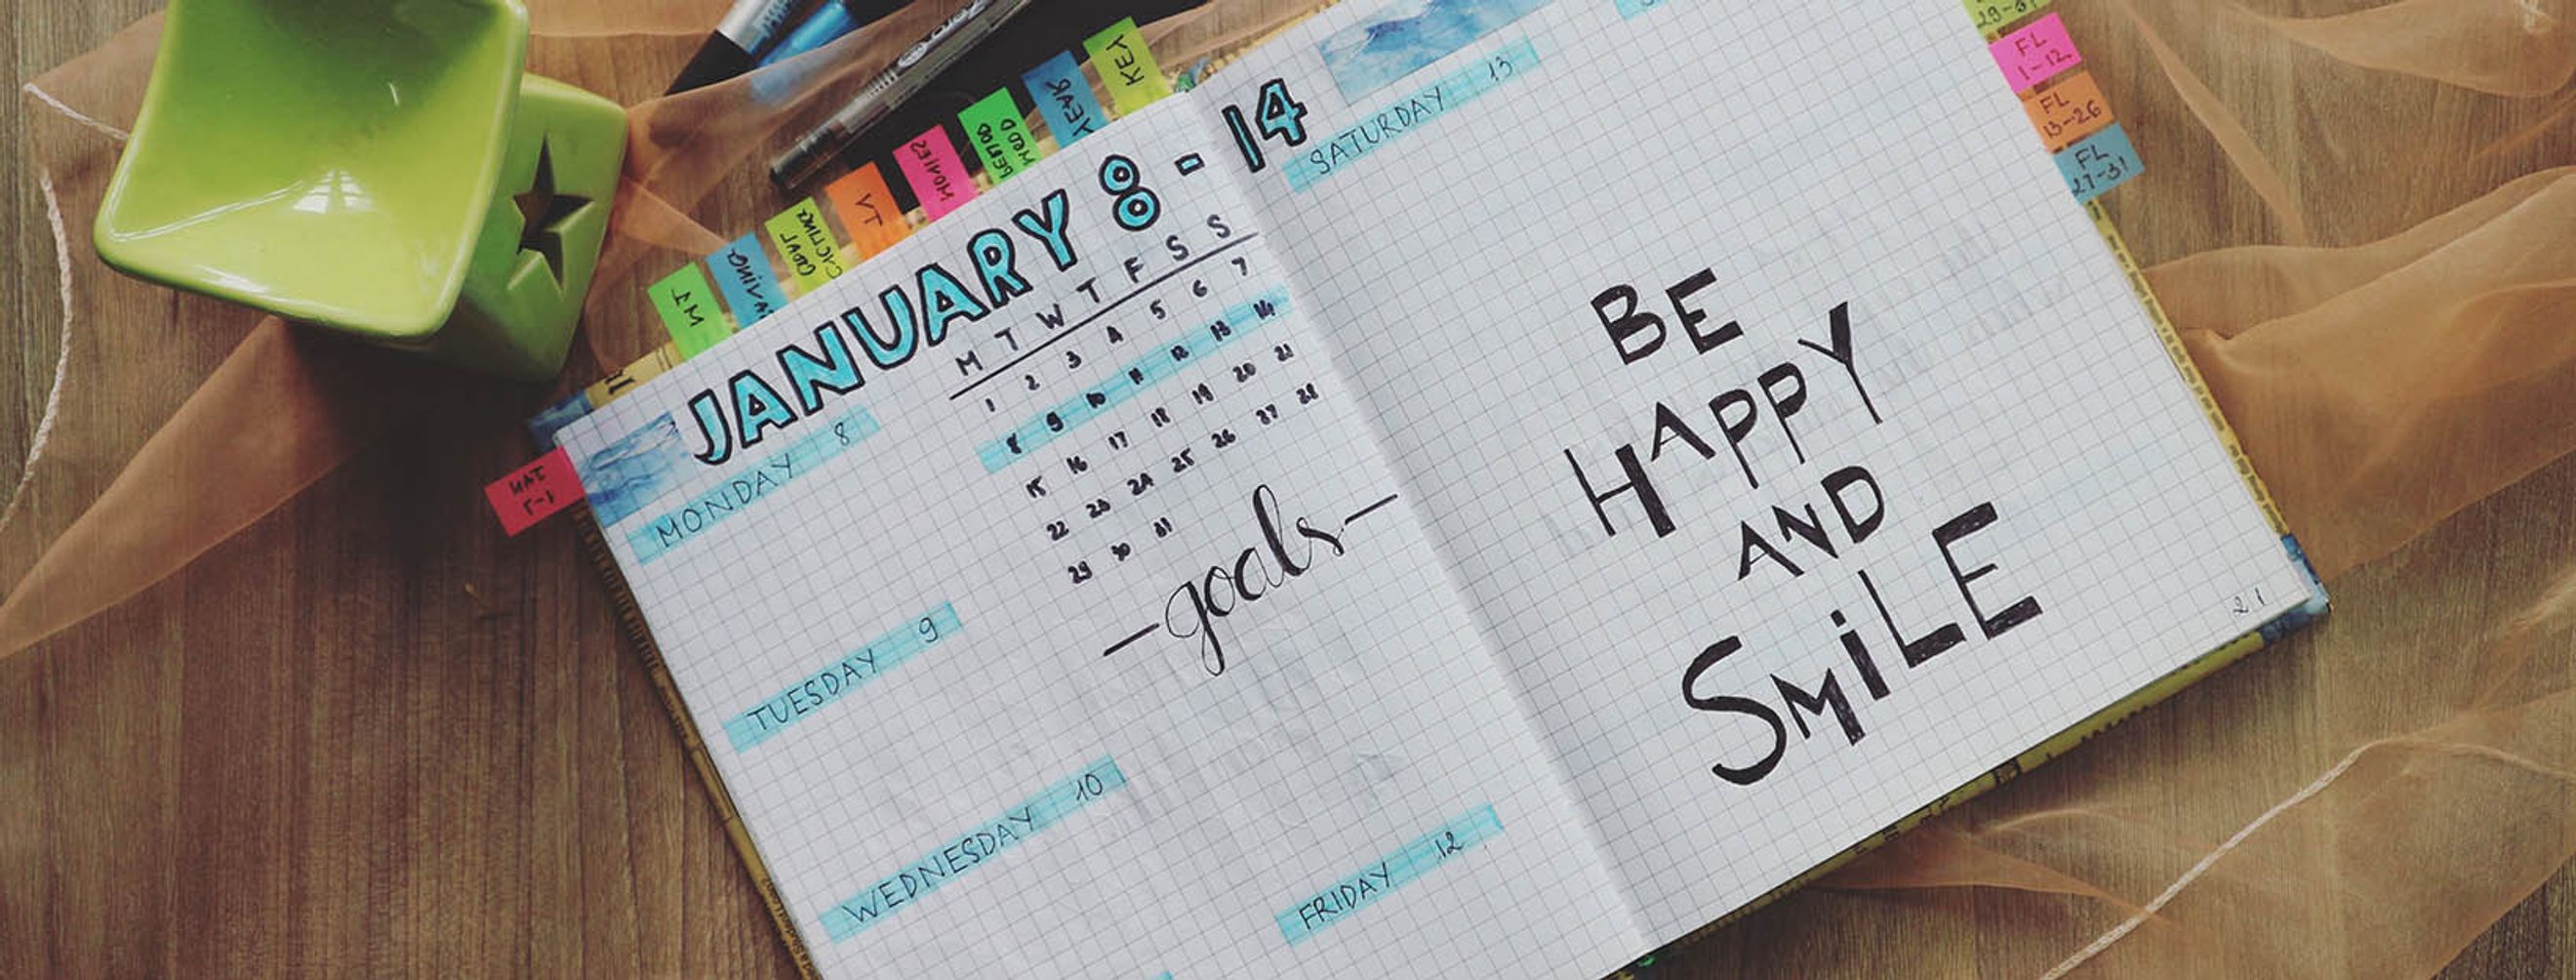 KEY
YEAR
MOOD
PERIOD
MOVIES
TV
GOAL
SAVING
MJ
JANUARY 8 - 14
M T W T F S S
1 2 3 4 5 6 7
8 9 10 11 12 13 14
15 16 17 18 19 20 21
22 23 24 25 26 27 28
29 30 31
MONDAY 8
TUESDAY 9
WEDNESDAY 10
goals
FRIDAY 12
SATURDAY 13
BE
HAPPY
AND
SMiLE
21
29-31
FL
1-12
FL
13-26
FL
27-31